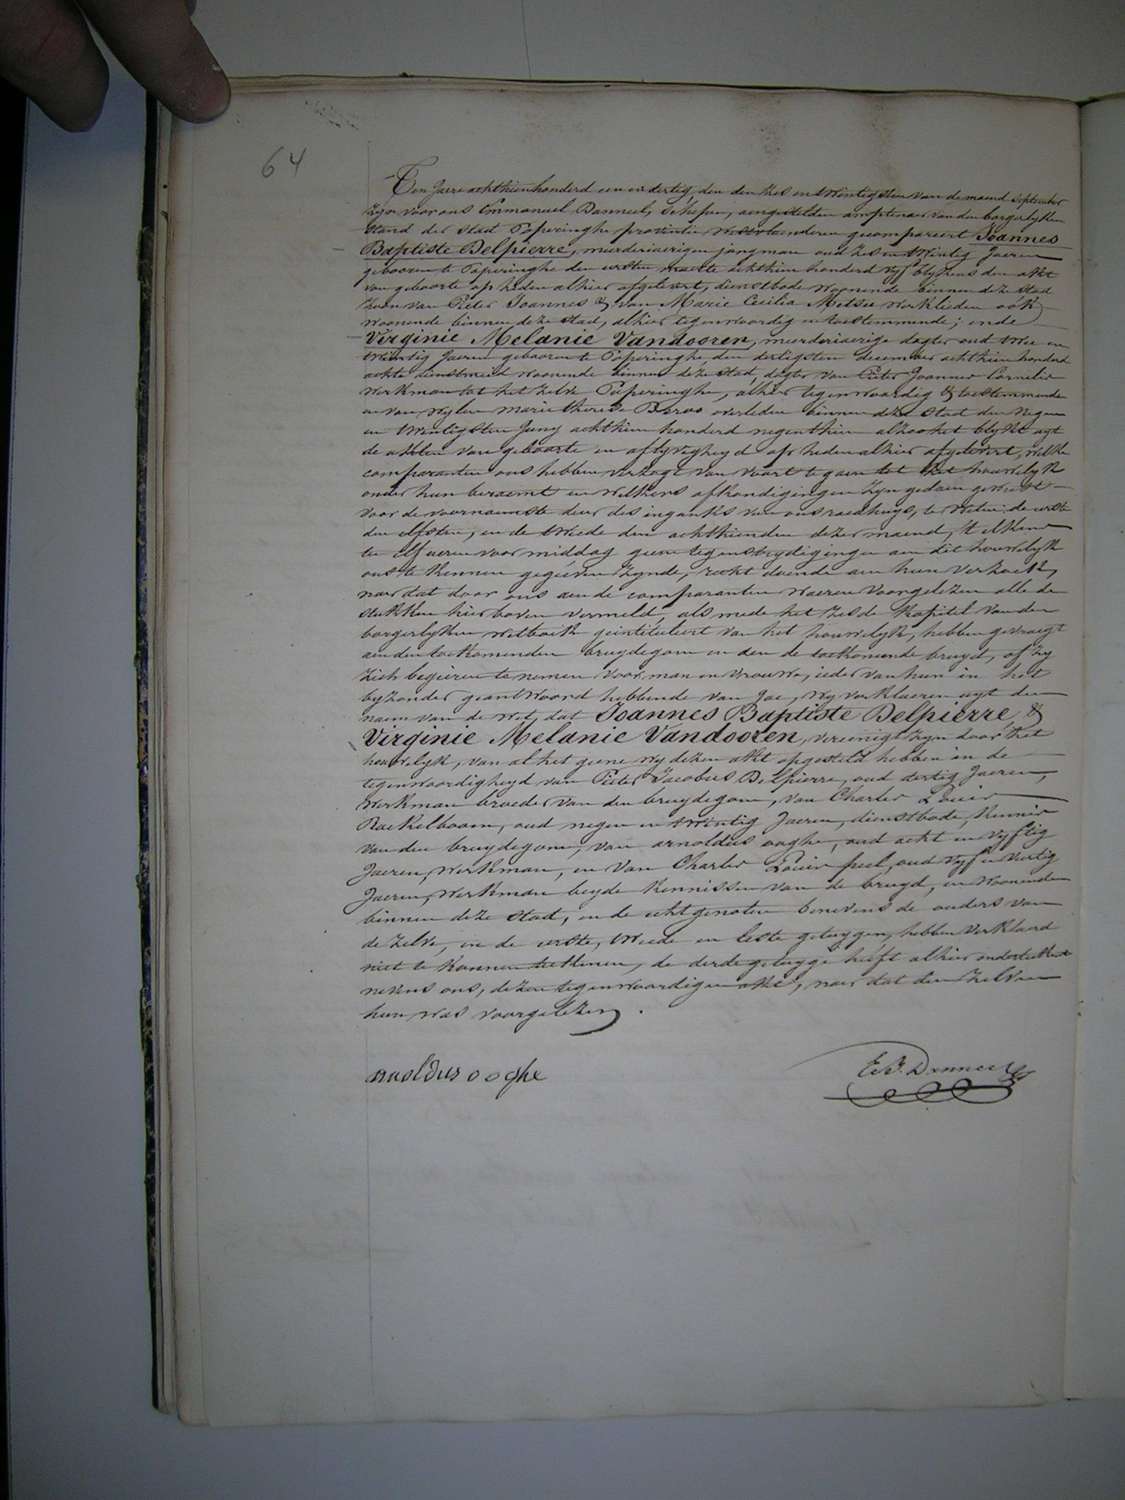 64
Ten Jaere achthienhonderd een en dertig, den den Zes en twintigsten van de maend September
Zyn voor ons Emmanuel Danneel, Schepen, aengestelden amptenaer van den borgerlyken
stand der Stad Poperinghe provintie Westvlaenderen gecompareert Joannes
Baptiste Delpierre, meerderjaerigen jongman oud zes en twintig Jaeren
gebooren te Poperinghe den eersten maerte achthien honderd vyf blykens den akt
van geboorte op heden alhier afgelevert, dienstbode woonende binnen deze Stad
Zoon van Pieter Joannes & van Marie Cecilia Metsu werklieden ook
woonende binnen deze stad, alhier tegenwoordig en toestemmende; ende
Virginie Melanie Vandooren, meerderjaerige dogter oud twee en
twintig Jaeren gebooren te Poperinghe, den dertigsten december achthien honderd
achte dienstmeid woonende binnen deze Stad, dogter van Pieter Joannes Cornelis
werkman tot het zelve Poperinghe, alhier tegenwoordig & toestemmende
en van wylen Marie therese overleden binnen deze stad den negen
en twintigsten Juny achthien honderd negenthien alzoo het blykt uyt
de akten van geboorte en aflyvigheyd op heden alhier afgelevert, welke
comparanten ons hebben verzogt van voort te gaen tot het houwelyk
onder hun beraemt en welkers afkondigingen zyn gedaen geweest
voor de voornaemste deur des ingank van ons raedhuys, te weten: de eerste
den elfsten, en de tweede den achthienden dezer maend, t'elkens
ten elf uren voor middag geene tegenstrydigingen aen dit houwelyk
ons te kennen gegeeven zynde, recht doende aen hun verzoek,
naer dat door ons aen de comparanten waeren voorgelezen alle de
stukken hier boven vermeld, als mede het zesde kapitel van den
borgerlyken wetboek geintituleert van het houwelyk, hebben gevraegt
aen den toekomenden bruydegom en aen de toekomende bruyd, of zy
zich begeeren te nemen voor man en vrouwe, ieder van hun in het
byzonder geantwoord hebbende van Jae, wy verklaeren uyt den
naem van de wet, dat Joannes Baptiste Delpierre &
Virginie Melanie Vandooren, vereenigt zyn door het
houwelyk, van al het geene wy dezen akt opgesteld hebben in de
tegenwoordigheyd van Pieter Jacobus Delpierre, oud dertig Jaeren,
werkman broeder van den bruydegom, van Charles Louis
Baekelboom, oud negen en twintig Jaeren, dienstbode, kennis
van den bruydegom, van arnoldus ooghe, oud acht en vyftig
Jaeren, werkman, en van Charles Louis peel, oud vyf en veertig
Jaeren, werkman beyde kennissen van de bruyd, en woonende
binnen deze stad, en de echtgenoten benevens de ouders van
de zelve, en de eerste, tweede en leste getuygen, hebben verklaard
niet te konnen teekenen, de derde getuyge heeft alhier onderteekend
nevens ons, dezen tegenwoordigen akt, naer dat den zelven
hun was voorgelezen.
arnoldus ooghe
E.J. Danneel